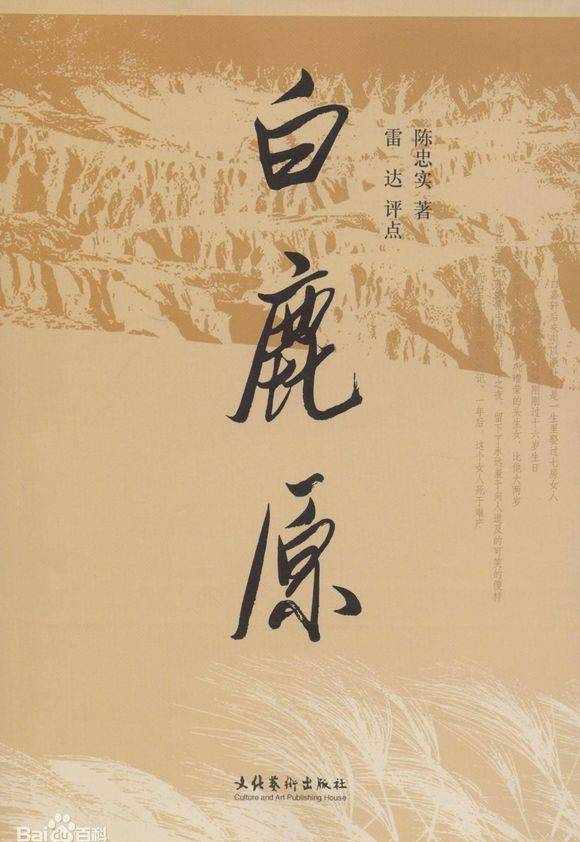 白鹿原
陈忠实 著
雷 达 评点
是一生里娶过七房女人
刚刚过十六岁生日
的头生女，比他大两岁
之夜，留下了永远羞于向人道及的可笑的傻样
记。一年后，这个女人死于难产
文化艺术出版社
Culture and Art Publishing House
Bai百科